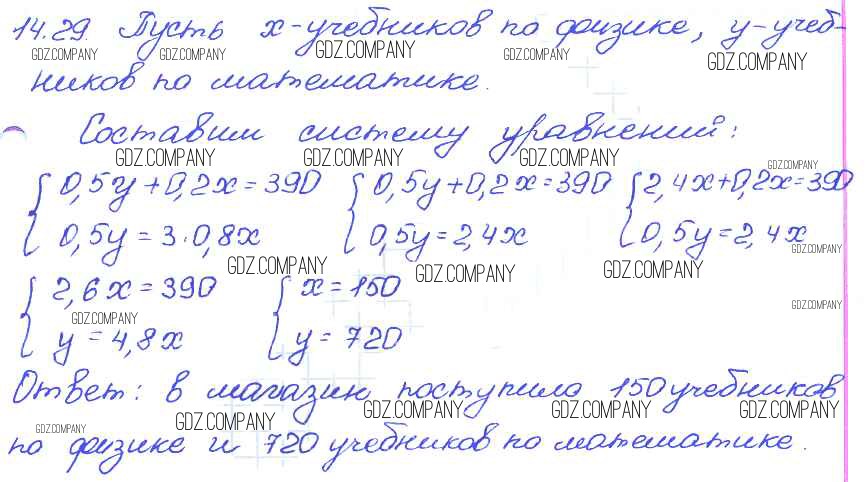 14.29. Пусть x-учебников по физике, y-учеб-
ников по математике.
Составим систему уравнений:
{0,5y+0,2x=390 {0,5y+0,2x=390 {2,4x+0,2x=390
0,5y=3·0,8x 0,5y=2,4x 0,5y=2,4x
{2,6x=390 {x=150
y=4,8x y=720
Ответ: в магазин поступило 150 учебников
по физике и 720 учебников по математике.
GDZ.COMPANY GDZ.COMPANY GDZ.COMPANY GDZ.COMPANY GDZ.COMPANY
GDZ.COMPANY GDZ.COMPANY GDZ.COMPANY GDZ.COMPANY
GDZ.COMPANY GDZ.COMPANY GDZ.COMPANY GDZ.COMPANY
GDZ.COMPANY GDZ.COMPANY
GDZ.COMPANY GDZ.COMPANY GDZ.COMPANY GDZ.COMPANY GDZ.COMPANY